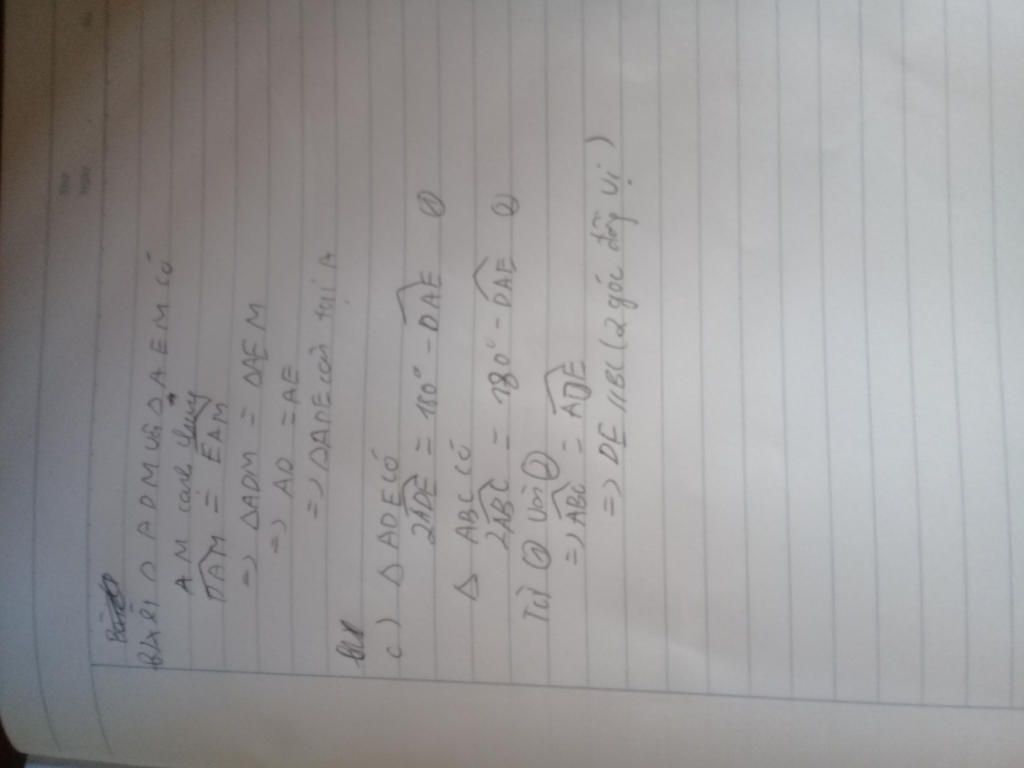 b) Xét △ ADM và △ AEM có
AM cạnh chung
DAM = EAM
=> △ADM = △AEM
=> AD = AE
=> △ADE cân tại A
c) △ ADE có
2ADE = 180° - DAE ①
△ ABC có
2ABC = 180° - DAE ②
Từ ① với ②
=> ABC = ADE
=> DE // BC (2 góc đồng vị)